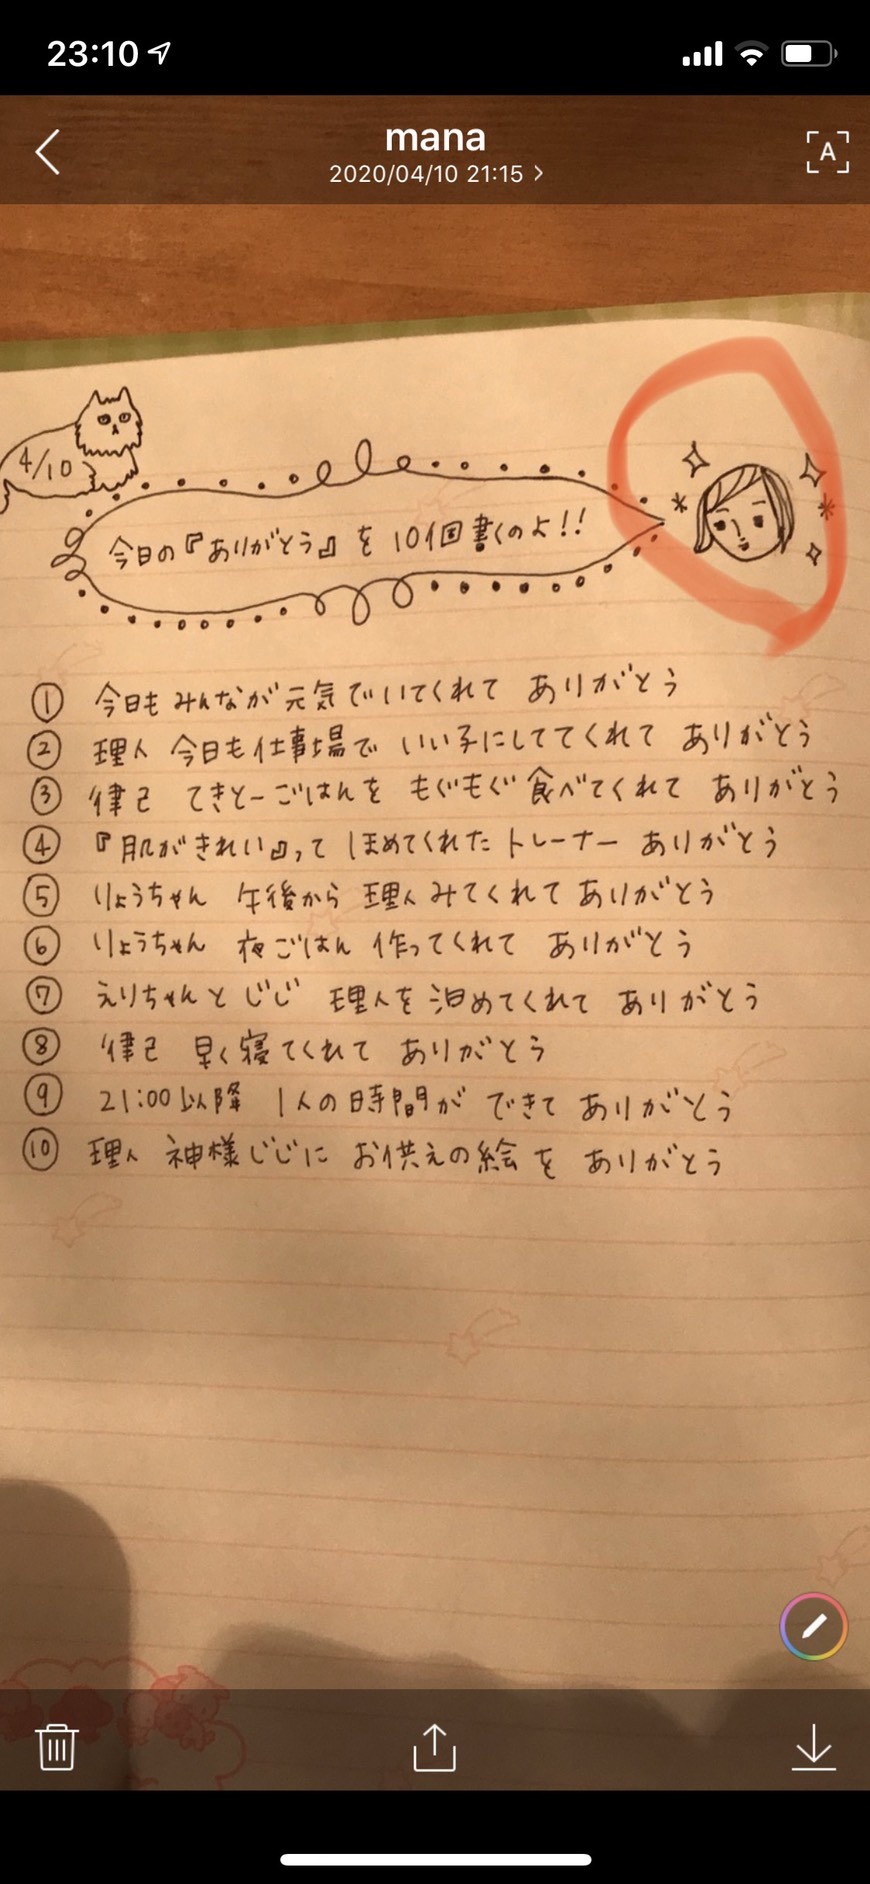 23:10
mana
2020/04/10 21:15
A
4/10
今日の『ありがとう』を10個書くのよ!!
① 今日もみんなが元気でいてくれて ありがとう
② 理人 今日も仕事場で いい子にしててくれて ありがとう
③ 律己 てきとーごはんを もぐもぐ食べてくれて ありがとう
④ 『肌がきれい』って ほめてくれたトレーナー ありがとう
⑤ りょうちゃん 午後から 理人みてくれて ありがとう
⑥ りょうちゃん 夜ごはん 作ってくれて ありがとう
⑦ えりちゃんと じじ 理人を泊めてくれて ありがとう
⑧ 律己 早く寝てくれて ありがとう
⑨ 21:00以降 1人の時間が できて ありがとう
⑩ 理人 神様じじに お供えの絵を ありがとう